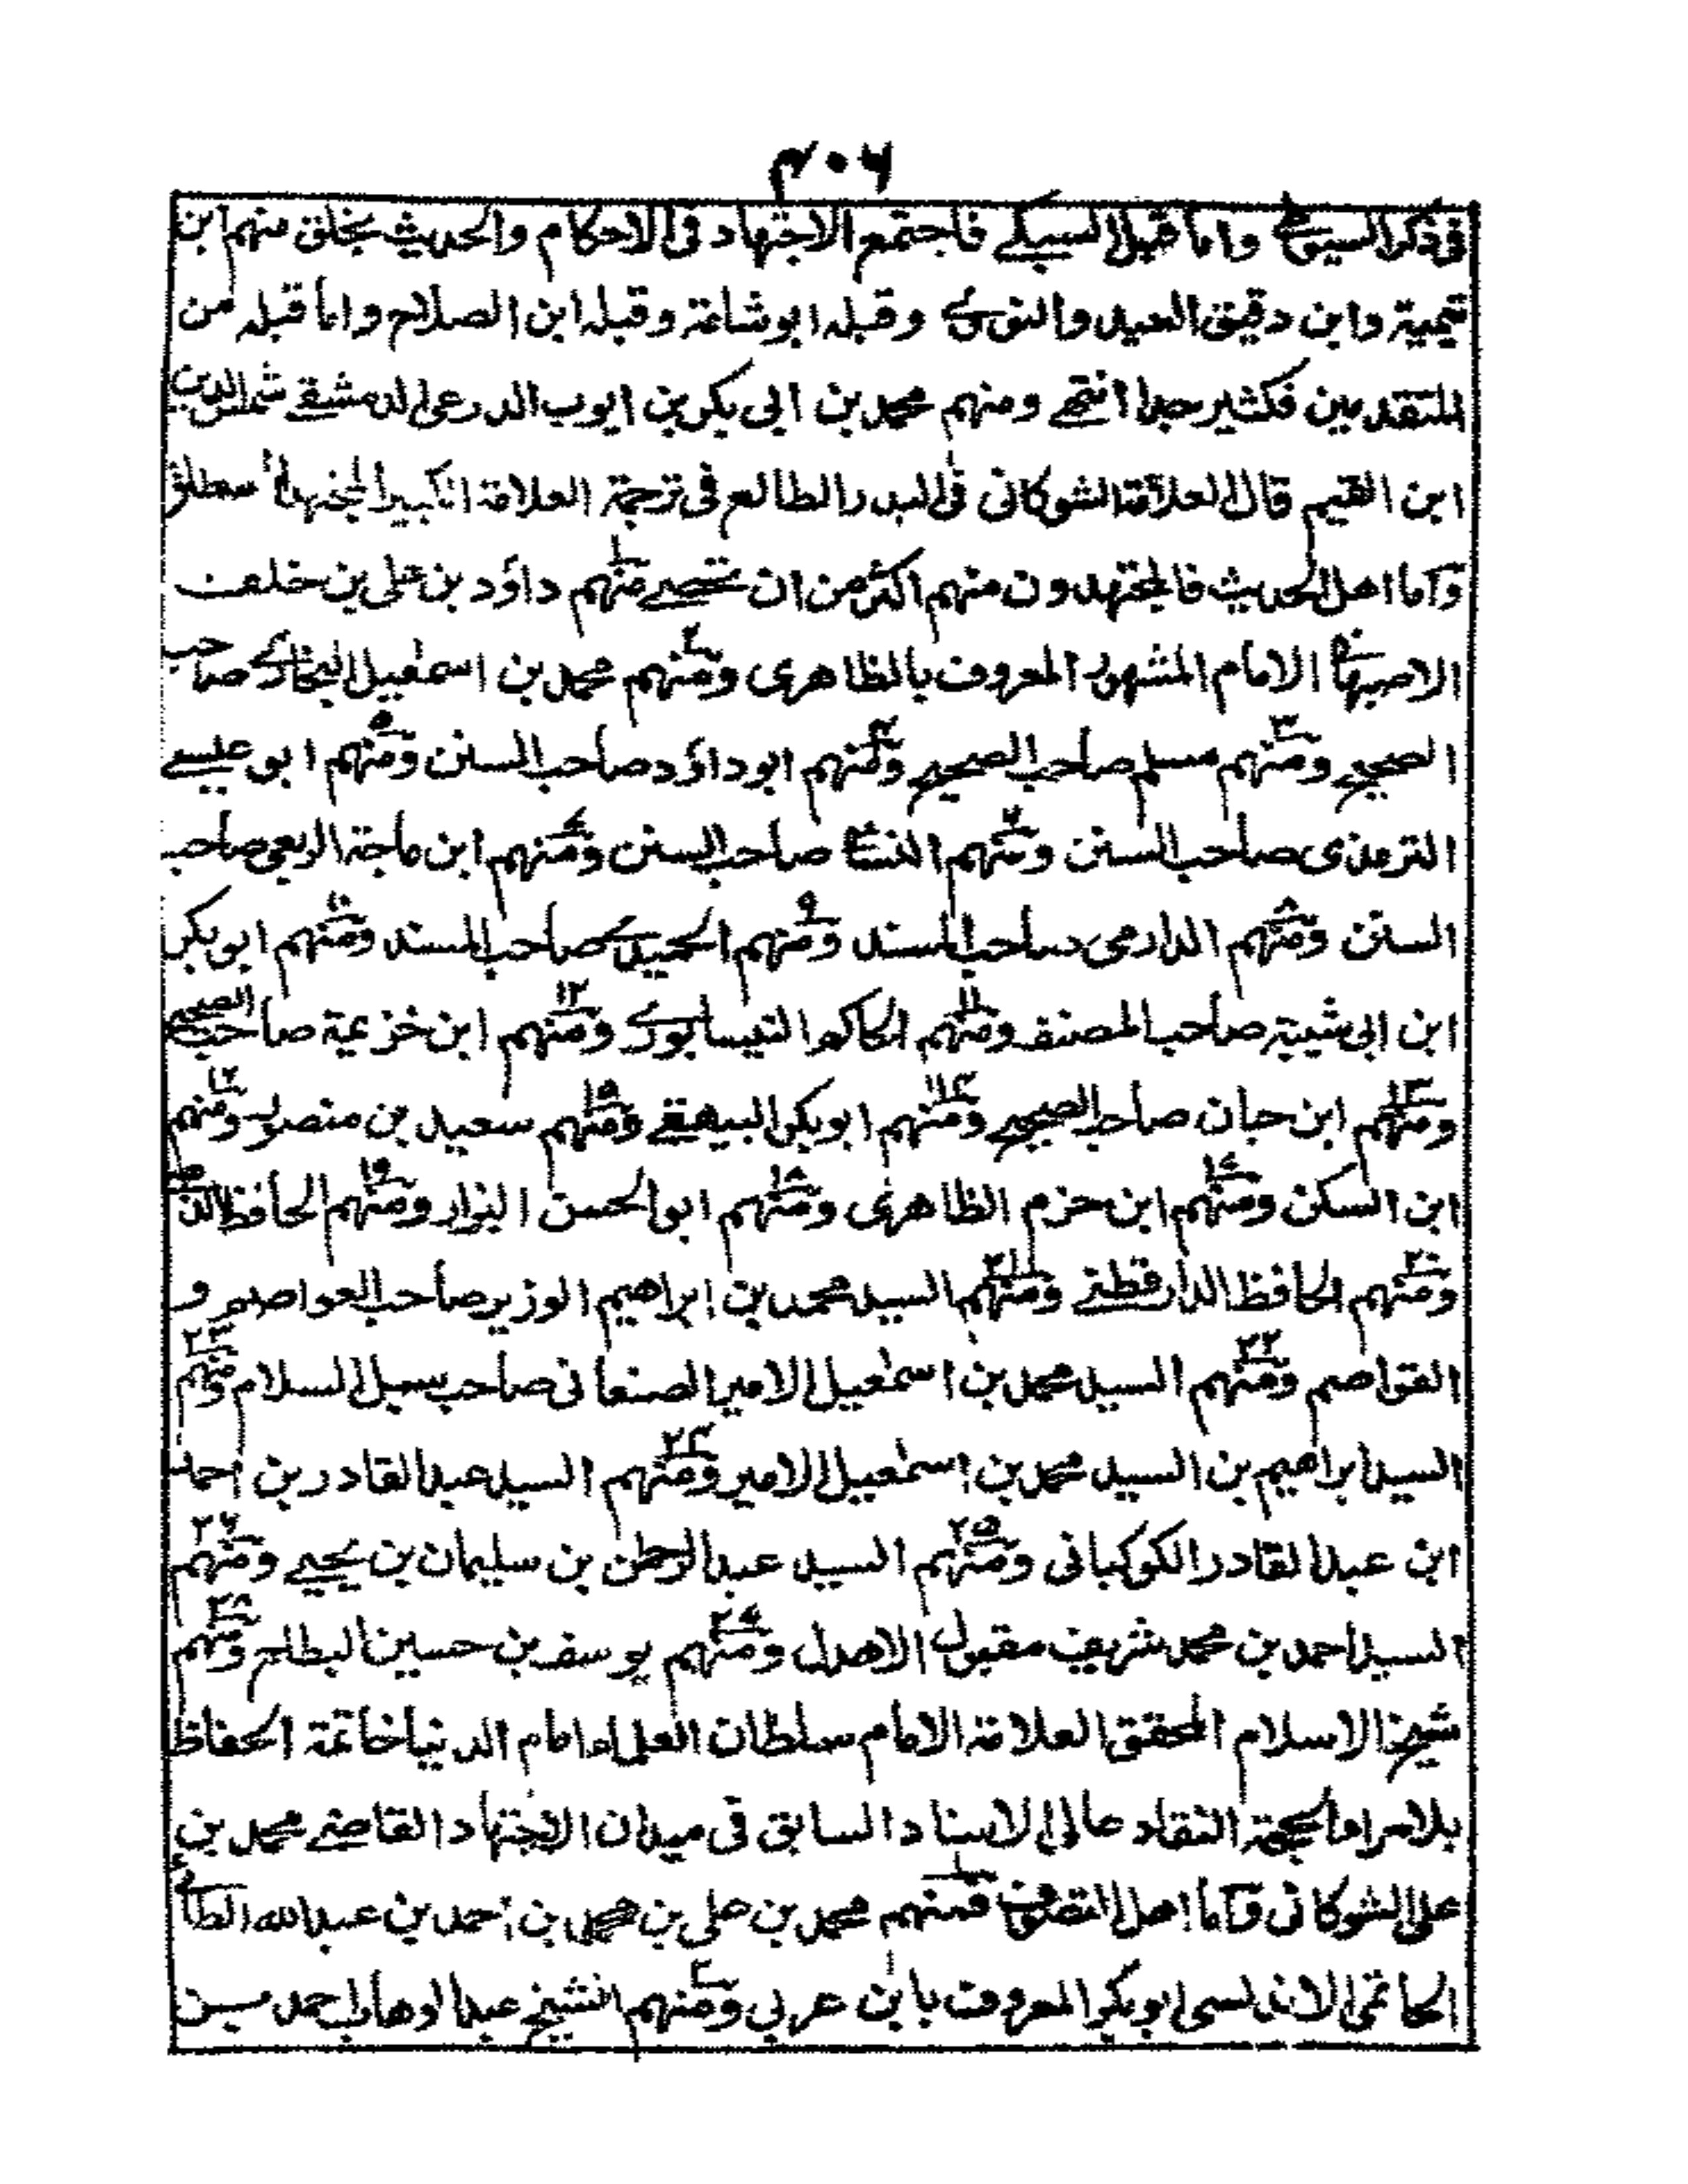 ۴۰۶
فى ذكر السيوطي واما قبل السبكے فاجتمع الاجتهاد فى الاحكام والحديث بخلق منهم ابن
تيمية وابن دقيق العيد والنوى وقبله ابو شامة وقبله ابن الصلاح واما قبله من
المتقدمين فكثير جدا انتهے ومنهم محمد بن ابى بكر بن ايوب الدرعى الدمشقے شمس الدين
ابن القيم قال العلامة الشوكانى فى البدر الطالع فى ترجمة العلامة الكبير المجتهد المطلق
وَاما اهل الحديث فالمجتهدون منهم اكثر من ان تحصے منهم ۱ داؤد بن على بن خلف
الاصبهانى الامام المشهور المعروف بالظاهرى ومنهم ۲ محمد بن اسمٰعيل البخارے صاحب
الصحيح ومنهم ۳ مسلم صاحب الصحيح ومنهم ۴ ابو داؤد صاحب السنن ومنهم ۵ ابو عيسے
الترمذى صاحب السنن ومنهم ۶ النسائى صاحب السنن ومنهم ۷ ابن ماجة الربعى صاحب
السنن ومنهم ۸ الدارمى صاحب المسند ومنهم ۹ الحميدے صاحب المسند ومنهم ۱۰ ابو بكر
ابن ابى شيبة صاحب المصنف ومنهم ۱۱ الحاكم النيسابورے ومنهم ۱۲ ابن خزيمة صاحب الصحيح
ومنهم ۱۳ ابن حبان صاحب الصحيح ومنهم ۱۴ ابو بكر البيهقے ومنهم ۱۵ سعيد بن منصور ومنهم ۱۶
ابن السكن ومنهم ۱۷ ابن حزم الظاهرى ومنهم ۱۸ ابو الحسن البزار ومنهم ۱۹ الحافظ الذهبى
ومنهم ۲۰ الحافظ الدارقطنے ومنهم ۲۱ السيد محمد بن ابراهيم الوزير صاحب العواصم و
القواصم ومنهم ۲۲ السيد محمد بن اسمٰعيل الامير الصنعانى صاحب سبل السلام ومنهم ۲۳
السيد ابراهيم بن السيد محمد بن اسمٰعيل الامير ومنهم ۲۴ السيد عبد القادر بن احمد
ابن عبد القادر الكوكبانى ومنهم ۲۵ السيد عبد الرحمٰن بن سليمان بن يحيے ومنهم ۲۶
السيد احمد بن محمد شريف مقبول الاهدل ومنهم ۲۷ يوسف بن حسين البطاح ومنهم ۲۸
شيخ الاسلام المحقق العلامة الامام سلطان العلماء امام الدنيا خاتمة الحفاظ
بلا مراء الحجة النقاد عالى الاسناد السابق فى ميدان الاجتهاد القاضے محمد بن
على الشوكانى وَاما اهل التصوف فمنهم ۱ محمد بن على بن محمد بن احمد بن عبد الله الطائى
الحاتمى الاندلسى ابو بكر المعروف بابن عربى ومنهم ۲ الشيخ عبد الوهاب احمد بن